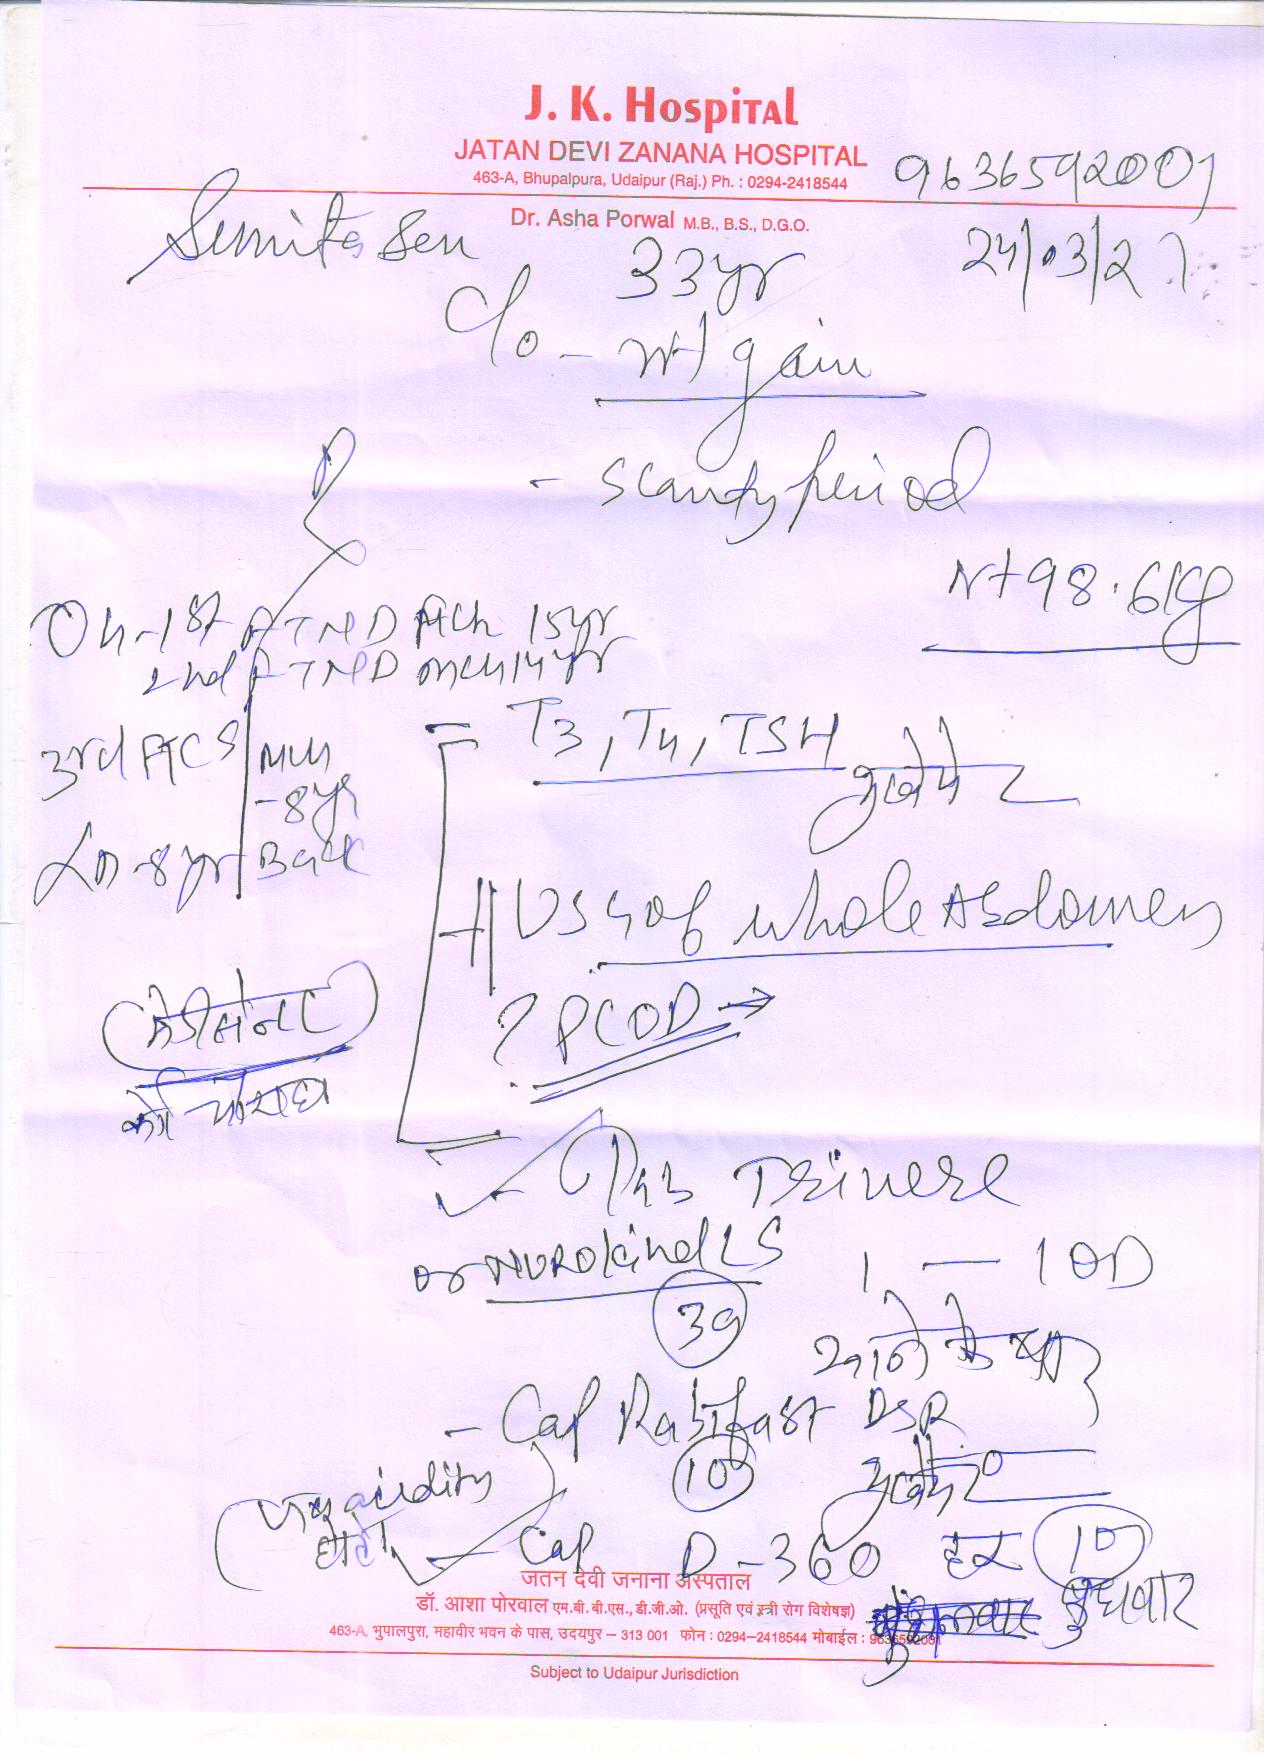 J. K. Hospital
JATAN DEVI ZANANA HOSPITAL
463-A, Bhupalpura, Udaipur (Raj.) Ph. : 0294-2418544
9636592001
Dr. Asha Porwal M.B., B.S., D.G.O.
Sumita Sen
33yr
24/03/2
C/o - wt gain
- Scanty period
Wt 98.6 kg
Oh - 1st FTND FCh 15yr
2nd FTND mch 14yr
3rd CS Mch
- 8yr
LD - 8yr Back
- T3, T4, TSH
USG of whole Abdomen
? PCOD →
को
Tab
or NUROkind LS
1 — 1 OD
30
खाने के
- Cap Rabifast DSR
10
acidity
Cap D-360 हर 10
बुधवार
जतन देवी जनाना अस्पताल
डॉ. आशा पोरवाल एम.बी.बी.एस., डी.जी.ओ. (प्रसूति एवं स्त्री रोग विशेषज्ञ)
463-A, भुपालपुरा, महावीर भवन के पास, उदयपुर – 313 001 फोन : 0294–2418544 मोबाईल : 9636592001
Subject to Udaipur Jurisdiction